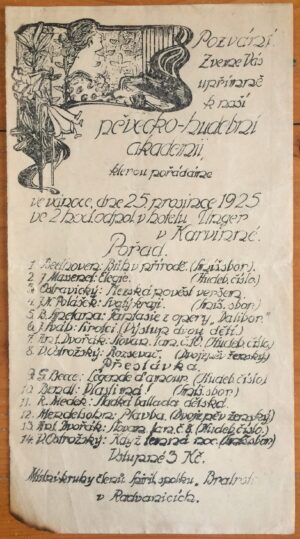 Pozvání
Zveme Vás
upřímně
k naší
pěvecko-hudební
akademii,
kterou pořádáme
ve vánoce, dne 25 prosince 1925
ve 2 hod odpol. v hotelu Unger
v Karvinné.
Pořad.
1. Beethoven: Bůh v přírodě. (Smíš. sbor).
2. J. Massenet: Elegie. (Hudeb. číslo)
3. Ostravický: Slezská pověst veršem.
4. J. N. Poláček: Svatý kraji. (Smíš. sbor)
5. B. Smetana: Fantasie z opery „Dalibor"
6. J. Kvíb: Sirotci (Výstup dvou dětí.)
7. Ant. Dvořák: Slovan. tanc. (Hudeb. číslo)
8. V. Ostrožský: Rozsévač. (Dvojzpěv ženský)
Přestávka
9. G. Becce: Legende d'amour. (Hudeb. číslo)
10. Bendl: Vlasti mé (Smíš. sbor)
11. R. Medek: Sladká ballada dětská.
12. Mendelsohn: Plavba. (Dvojzpěv ženský)
13. Ant. Dvořák: Slovan. tan. č. 8. (Hudeb. číslo)
14. V. Ostrožský: Když temná noc. (Smíš. sbor)
Vstupné 3 Kč.
Místní kruhy členů Spirit. spolku „Bratrství"
v Radvanicích.